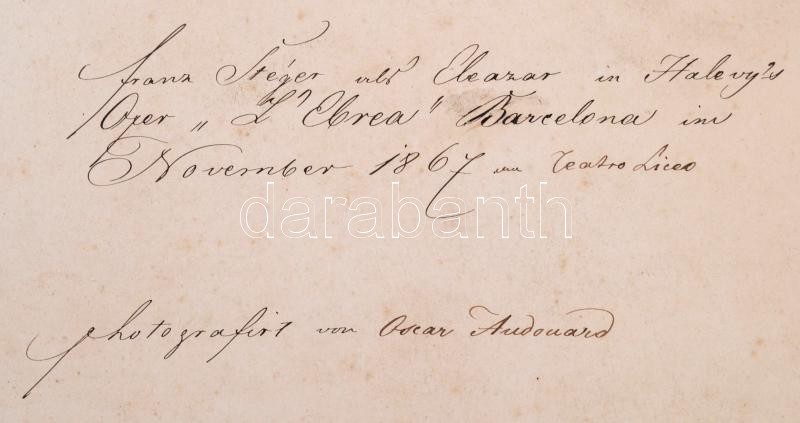 Franz Stéger als Eleazar in Halevy's
Oper „L' Ebrea" Barcelona im
November 1867 im Teatro Liceo
darabanth
photografirt von Oscar Audouard